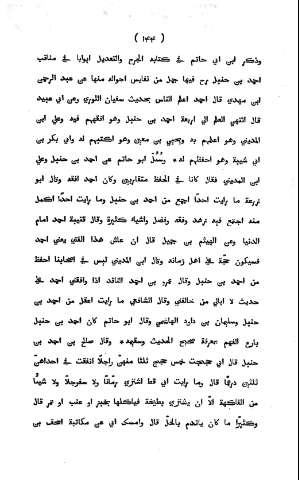 ( ١٤٤ )
وذكر ابن ابي حاتم في كتابه الجرح والتعديل ابوابا في مناقب
احمد بن حنبل رح فيها جمل من نفايس احواله منها عن عبد الرحمن
ابن مهدي قال احمد اعلم الناس بحديث سفيان الثوري وعن ابي عبيد
قال انتهى العلم الى اربعة احمد بن حنبل وهو افقههم فيه وعلي ابن
المديني وهو اعلمهم به ويحيى بن معين وهو اكتبهم له وابي بكر بن
ابي شيبة وهو احفظهم له وسُئل ابو حاتم عن احمد بن حنبل وعلي
ابن المديني فقال كانا في الحفظ متقاربين وكان احمد افقه وقال ابو
زرعة ما رايت احدا اجمع من احمد بن حنبل وما رايت احدا اكمل
منه اجتمع فيه زهد وفقه وفضل واشياء كثيرة وقال قتيبة احمد امام
الدنيا وعن الهيثم بن جميل قال ان عاش هذا الفتى يعني احمد
فسيكون حجة في اهل زمانه وقال ابن المديني ليس في اصحابنا احفظ
من احمد بن حنبل وقال عمرو بن احمد الناقد اذا وافقني احمد في
حديث لا ابالي من خالفني وقال الشافعي ما رايت اعقل من احمد بن
حنبل وسليمان بن داود الهاشمي وقال ابو حاتم كان احمد بن حنبل
بارع الفهم لمعرفة صحيح الحديث وسقيمه وقال صالح بن احمد بن
حنبل قال ابي حججت خمس حجج ثلثا منهن راجلا انفقت في احداهن
ثلثين درهما قال وما رايت ابي قط اشترى رمانا ولا سفرجلا ولا شيئا
من الفاكهة الا ان يشتري بطيخة فياكلها بخبز او عنب او تمر قال
وكثيرا ما كان ياتدم بالخل قال وامسك ابي عن مكاتبة اسحق بن